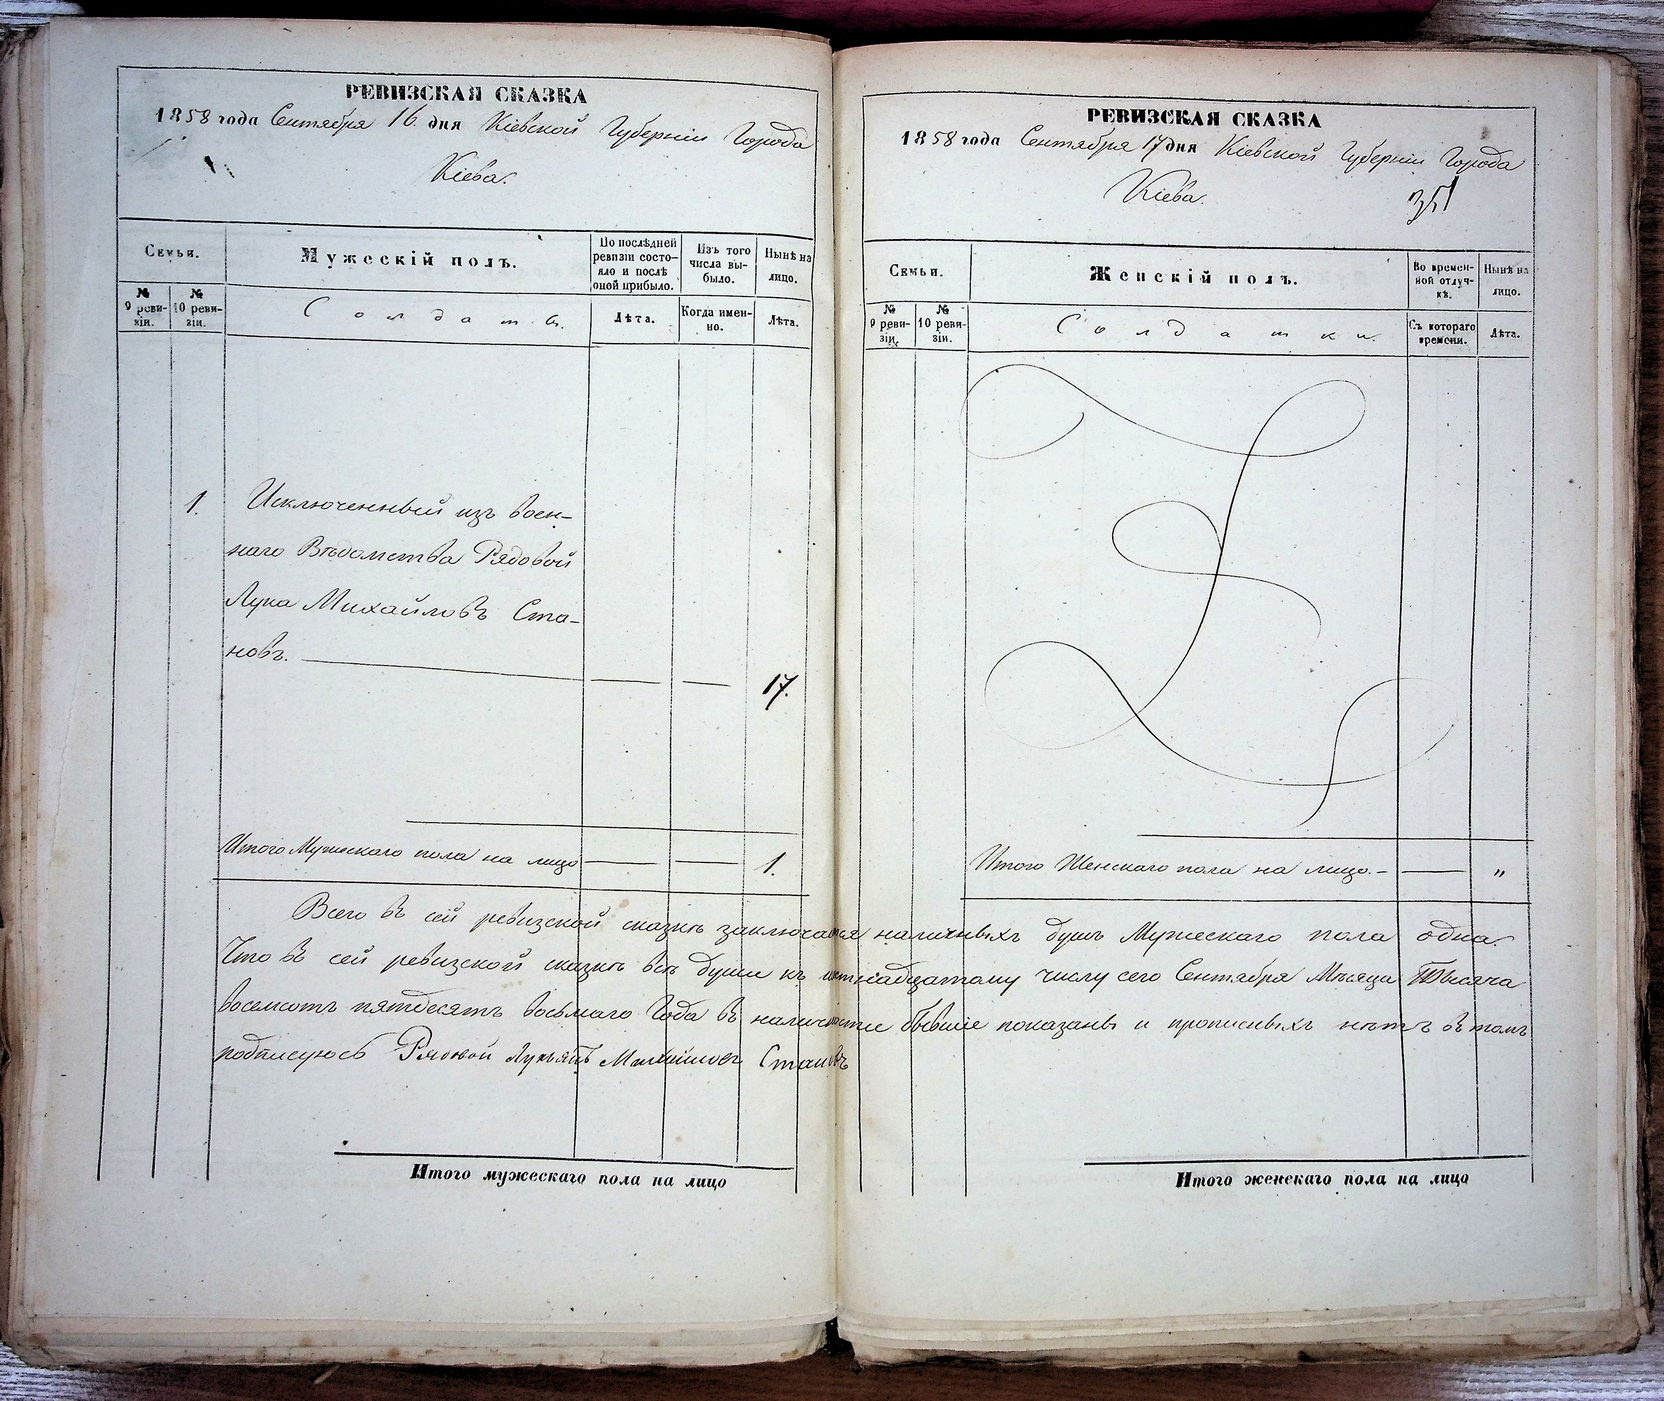 РЕВИЗСКАЯ СКАЗКА
1858 года Сентября 16 дня Кіевской Губерніи Города
Кіева.
Семьи.
Мужескій полъ.
По послѣдней ревизіи состояло и послѣ оной прибыло.
Изъ того числа выбыло.
Нынѣ на лицо.
№ 9 ревизіи.
№ 10 ревизіи.
Солдаты.
Лѣта.
Когда именно.
Лѣта.
1. Исключенный изъ воен-
наго Вѣдомства Рядовой
Лука Михайловъ Ста-
новъ.
17.
Итого Мужескаго пола на лицо 1.
РЕВИЗСКАЯ СКАЗКА
1858 года Сентября 17 дня Кіевской Губерніи Города
Кіева.
351
Семьи.
Женскій полъ.
Во временной отлучкѣ.
Нынѣ на лицо.
№ 9 ревизіи.
№ 10 ревизіи.
Солдатки.
Съ котораго времени.
Лѣта.
Итого Женскаго пола на лицо. - "
Всего въ сей ревизской сказкѣ заключается наличныхъ душъ Мужескаго пола одна.
Что въ сей ревизской сказкѣ всѣ души къ числу сего Сентября Мѣсяца Тысяча
восемсотъ пятдесятъ восьмаго Года въ наличности бывшіе показаны и прописныхъ нѣтъ въ томъ
подписуюсь Рядовой Становъ
Итого мужескаго пола на лицо
Итого женскаго пола на лицо